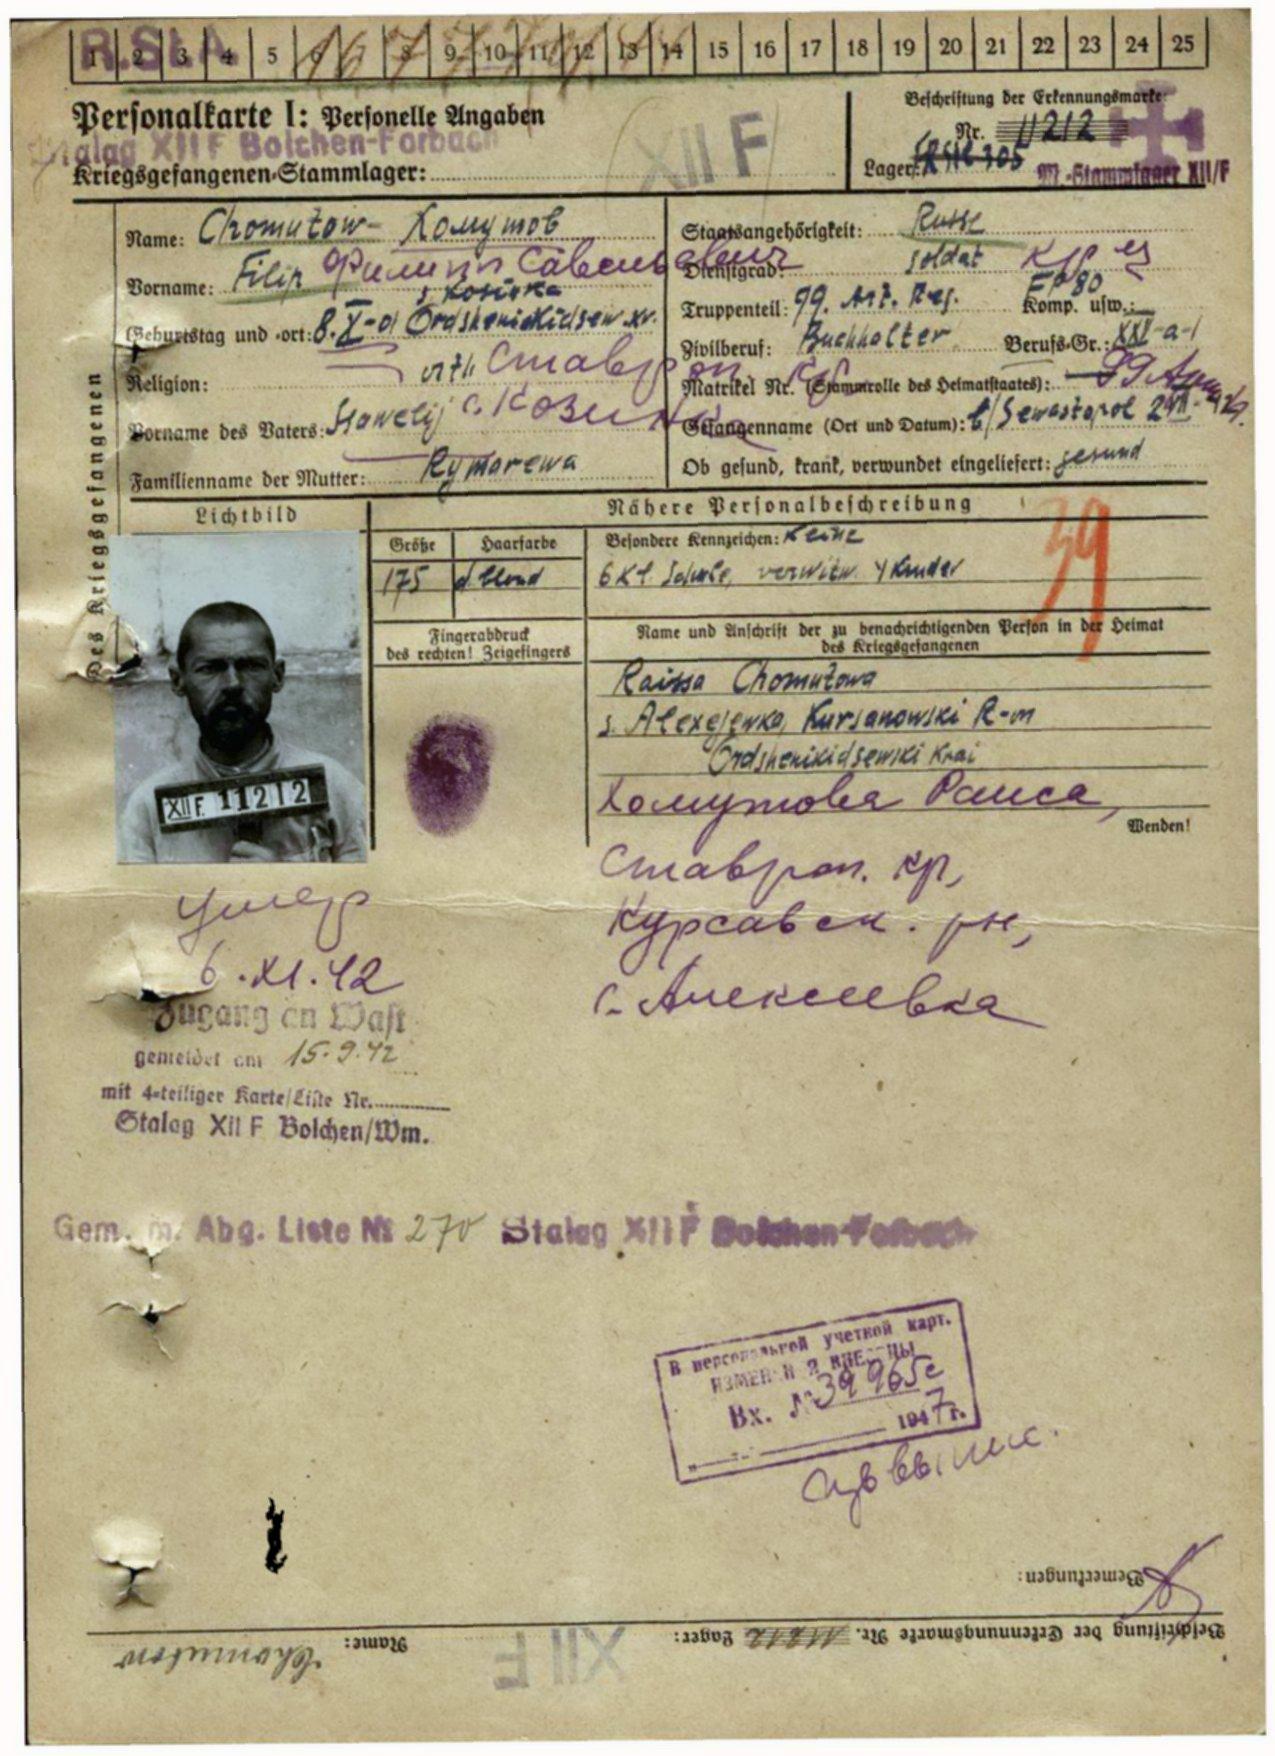 R.St.A
1 2 3 4 5 6 8 9 10 11 12 13 14 15 16 17 18 19 20 21 22 23 24 25
Personalkarte I: Personelle Angaben
Stalag XII F Bolchen-Forbach
Kriegsgefangenen-Stammlager:
XII F
Beschriftung der Erkennungsmarke
Nr. 11212
Lager:
M.-Stammlager XII/F
Des Kriegsgefangenen
Name: Chomutow - Хомутов
Vorname: Filip Филипп Савельевич
s. Kosinka
Geburtstag und -ort: 8.X-01 Ordshenikidsew. kr.
Religion: orth. Ставроп. кр.
с. Козинка
Vorname des Vaters: Sawelij
Familienname der Mutter: Rymarewa
Staatsangehörigkeit: Russe
Dienstgrad: Soldat
Truppenteil: 99. Art. Reg. Komp. usw.:
Zivilberuf: Buchhalter Berufs-Gr.: XXI-a-1
Matrikel Nr. (Stammrolle des Heimatstaates):
Gefangenname (Ort und Datum): b/Sewastopol
Ob gesund, krank, verwundet eingeliefert: gesund
Lichtbild
Nähere Personalbeschreibung
Größe
Haarfarbe
175
d. blond
Besondere Kennzeichen: Keine
6 Kl. Schule, verwitw. 4 Kinder
39
Fingerabdruck
des rechten! Zeigefingers
Name und Anschrift der zu benachrichtigenden Person in der Heimat
des Kriegsgefangenen
Raissa Chomutowa
s. Alexejewka, Kursanowski R-on
Ordshenikidsewski Krai
Хомутова Раиса,
Wenden!
Ставроп. кр,
Курсавск. рн,
с. Алексеевка
XII F 11212
умер
6.XI.42
Zugang an Wast
gemeldet am 15.9.42
mit 4-teiliger Karte/Liste Nr.
Stalag XII F Bolchen/Wm.
Gem. m. Abg. Liste № 270 Stalag XII F Bolchen-Forbach
В персональной учетной карт.
Вх. № 39965с
1947 г.
Bemerkungen:
Beschriftung der Erkennungsmarke Nr. 11212 Lager: XII F Name: Chomutow